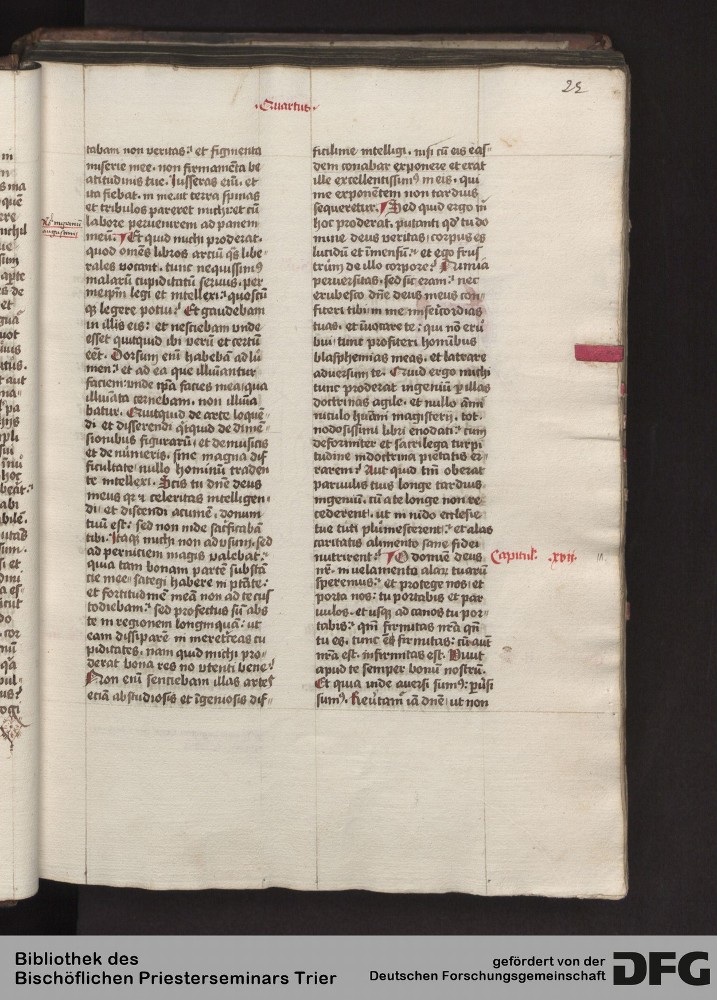 ·Quartus·
25
tabam non veritas: et figmenta
miserie mee· non firmamēta be
atitudinis tue· Iusseras eiu᷒· et
ita fiebat· in me ut terra spinas
et tribulos pareret michi: et cū
labore peruenirem ad panem
meū· Et quid michi proderat·
quod om̄es libros arciū q̄s libe
rales vocant· tunc nequissim⁹
malarū cupiditatū seruus· per
meip̄m legi et intellexi: quoscū
q̨ legere potui: Et gaudebam
in illis eis: et nesciebam vnde
esset quitquid ibi verū et certū
eēt· Dorsum enī habebā ad lu
men: et ad ea que illuīantur
faciem: vnde ip̄a facies mea qua
illuīata cernebam· non illuīa
batur· Quitquid de arte loquē
di et disserendi q̇tquid de dimē
sionibus figurarū· et de musicis
et de numeris· sine magna dif
ficultate· nullo hominū traden
te intellexi· Scis tu dn̄e deus
meus q̨r ⁊ celeritas intelligen
di· et discendi acumē· donum
tuū est: sed non inde sacrificabā
tibi· Itaq̨ michi non ad vsum· sed
ad perniciem magis valebat:
quia tam bonam partē substā
cie mee· sategi habere in p̄tāte:
et fortitudinē meā non ad te cus
todiebam: sed profectus sū abs
te in regionem longinquā: ut
eam dissiparē in meretrices cu
piditates· nam quid michi pro
derat bona res no vtenti bene:
Non enī sentiebam illas artes
eciā ab studiosis et īgeniosis dif
ficilime intelligi· nisi cū eis eas
dem conabar exponere et erat
ille excellentissim⁹ in eis· qui
me exponētem non tardius
sequeretur· Sed quid ergo m̄
hoc proderat· putanti qd' tu do
mine deus veritas· corpus es
lucidū et īmensū: et ego frus
trūm de illo corpore: Nimia
peruersitas· sed sic eram: nec
erubesco dn̄e deus meus con
fiteri tibi in me misericordias
tuas· et īuocare te: qui nō eru
bui tunc profiteri hominibus
blasphemias meas· et latrare
aduersum te· Quid ergo michi
tunc proderat ingeniū p̄ illas
doctrinas agile· et nullo am̄i
niculo hūani magisterij· tot·
nodosissimi libri enodati: cum
deformiter et sacrilega turpi
tudine in doctrina pietatis er
rarem: Aut quid tm̄ oberat
paruulis tuis longe tardius
ingeniū· cū a te longe non re
cederent· ut in nido ecclesie
tue tuti plumescerent: et alas
caritatis alimento sane fidei
nutrirent: O domine deus
Capitul· ·xvii·
nr̄· in velamento alar̨ tuarū
speremus: et protege nos· et
porta nos: tu portabis et par
uulos· et usq̨ ad canos tu por
tabis: qm̄ firmitas nr̄a qn̄
tu es· tunc ē firmitas: cū aūt
nr̄a est· infirmitas est· Viuit
apud te semper bonū nostrū·
Et quia inde auersi sum⁹: p̱uersi
sum⁹· Reu̓tam᷒ iā dn̄e· ut non
Bibliothek des
Bischöflichen Priesterseminars Trier
gefördert von der
Deutschen Forschungsgemeinschaft
DFG